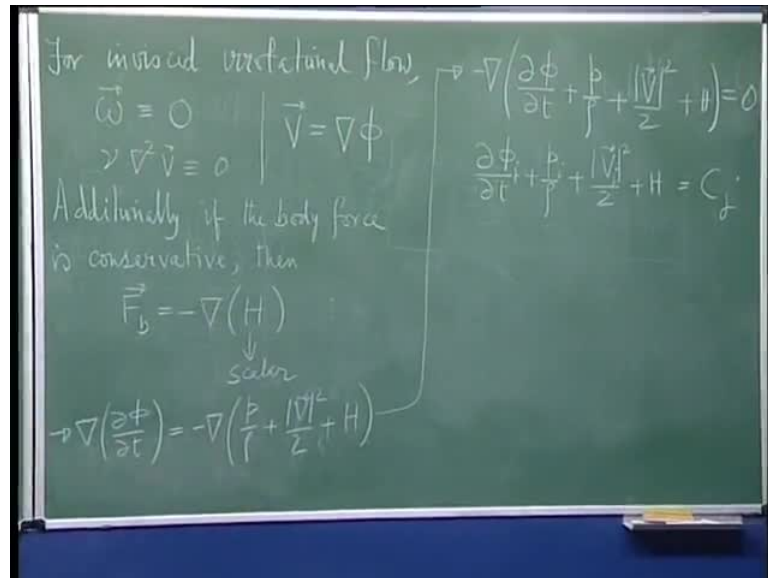 For inviscid irrotational flow,
$\vec{\omega} \equiv 0$
$\nu \nabla^2 \vec{V} \equiv 0$
$\vec{V} = \nabla \phi$
Additionally if the body force
is conservative, then
$\vec{F}_b = -\nabla(H)$
↓
scalar
$\rightarrow \nabla\left(\frac{\partial \phi}{\partial t}\right) = -\nabla\left(\frac{p}{\rho} + \frac{|\vec{V}|^2}{2} + H\right)$
$\rightarrow -\nabla\left(\frac{\partial \phi}{\partial t} + \frac{p}{\rho} + \frac{|\vec{V}|^2}{2} + H\right) = 0$
$\frac{\partial \phi_j}{\partial t} + \frac{p_j}{\rho} + \frac{|\vec{V}_j|^2}{2} + H = C_j$